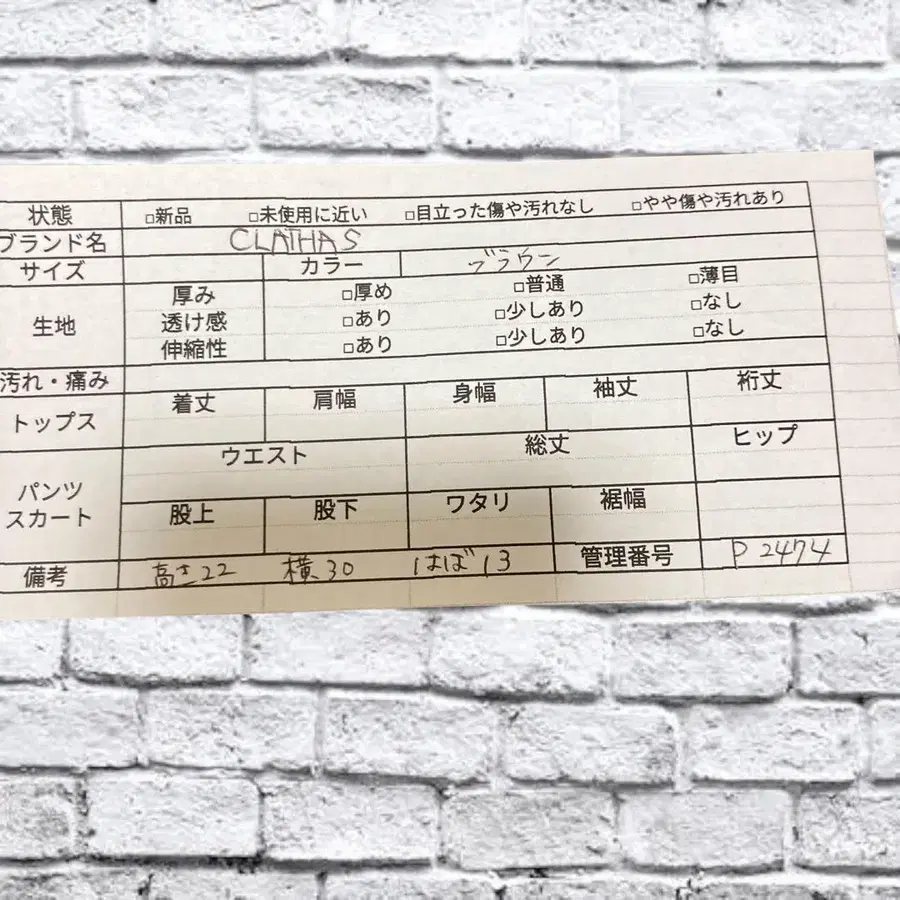 状態 □新品 □未使用に近い □目立った傷や汚れなし □やや傷や汚れあり
ブランド名 CLATHAS
サイズ カラー ブラウン
生地 厚み □厚め □普通 □薄目
透け感 □あり □少しあり □なし
伸縮性 □あり □少しあり □なし
汚れ・痛み
トップス 着丈 肩幅 身幅 袖丈 裄丈
パンツ スカート ウエスト 総丈 ヒップ
股上 股下 ワタリ 裾幅
備考 高さ22 横30 はば13 管理番号 P2474